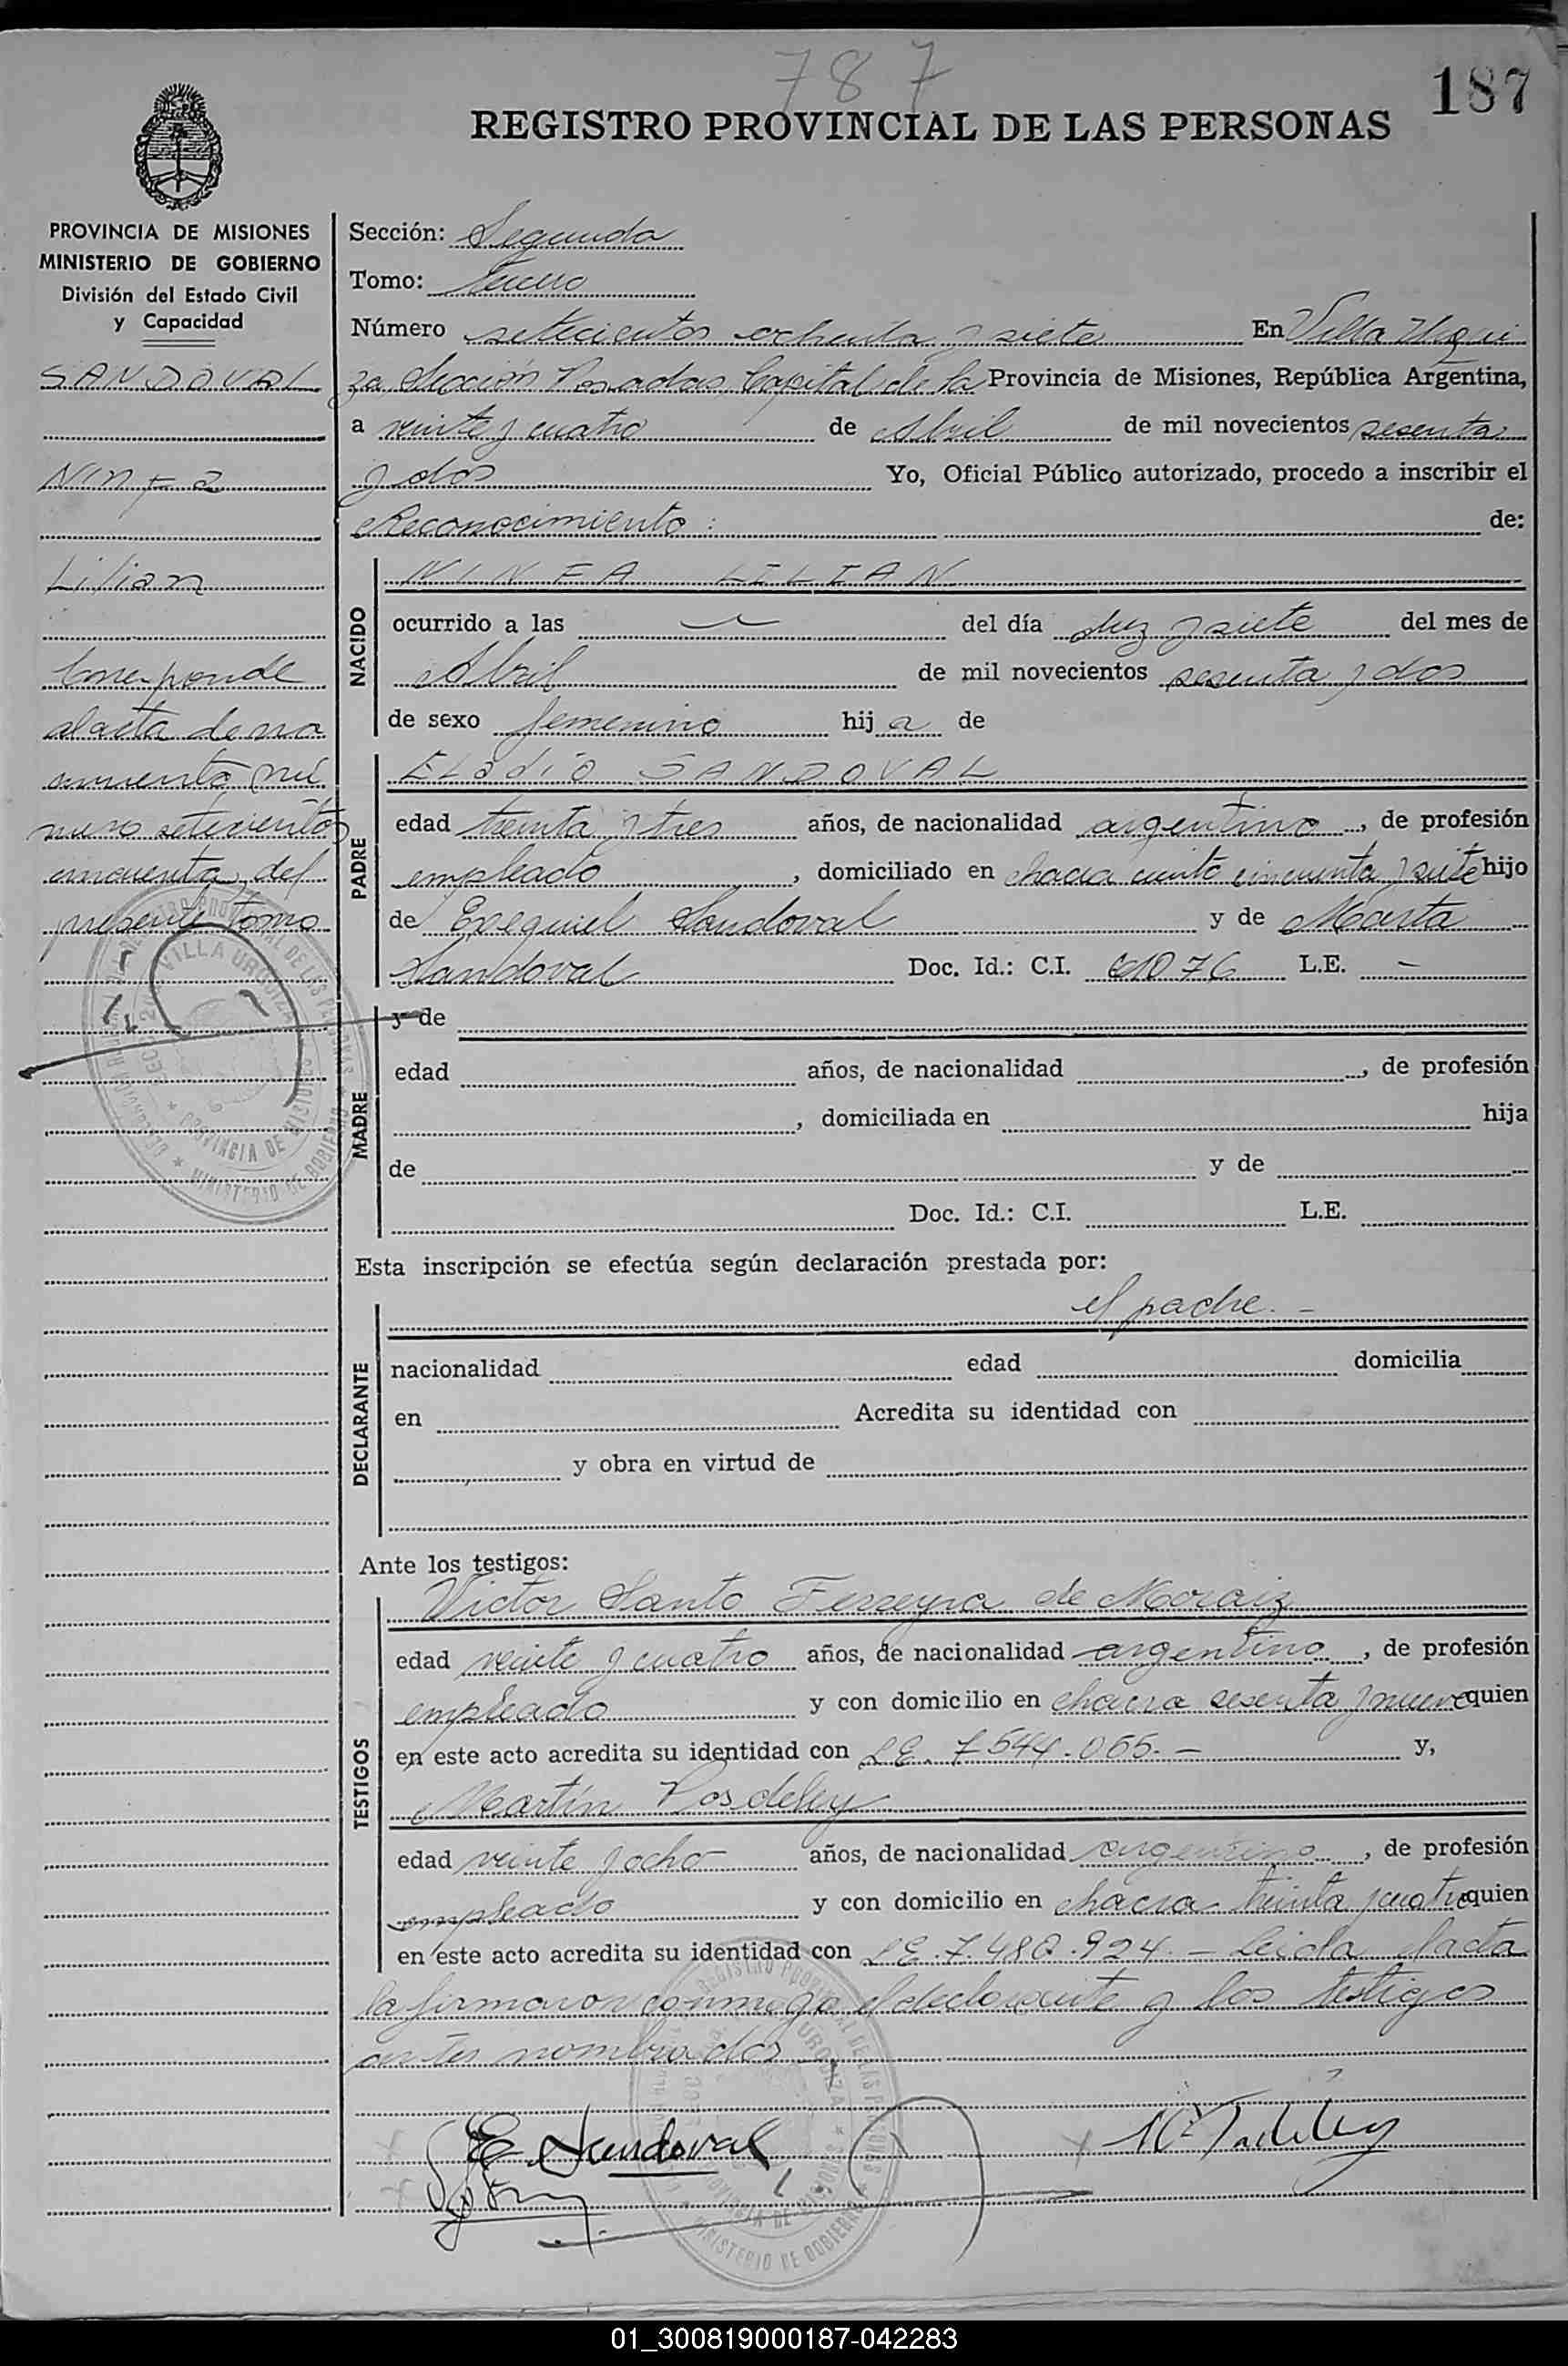 787
187
REGISTRO PROVINCIAL DE LAS PERSONAS
PROVINCIA DE MISIONES
MINISTERIO DE GOBIERNO
División del Estado Civil
y Capacidad
SANDOVAL
Ninfa
Lilian
Corresponde
al acta de na
cimiento nú
mero setecientos
cincuenta del
presente tomo
Sección: Segunda
Tomo: Tercero
Número setecientos ochenta y siete En Villa Urqui
za Sección Posadas Capital de la Provincia de Misiones, República Argentina,
a veinte y cuatro de Abril de mil novecientos sesenta
y dos Yo, Oficial Público autorizado, procedo a inscribir el
Reconocimiento: de:
NACIDO
NINFA LILIAN
ocurrido a las del día diez y siete del mes de
Abril de mil novecientos sesenta y dos
de sexo femenino hija de
PADRE
Eladio SANDOVAL
edad treinta y tres años, de nacionalidad argentino, de profesión
empleado, domiciliado en chacra ciento cincuenta y siete hijo
de Exequiel Sandoval y de Marta
Sandoval Doc. Id.: C.I. 61076 L.E. -
MADRE
y de
edad años, de nacionalidad , de profesión
, domiciliada en hija
de y de
Doc. Id.: C.I. L.E.
Esta inscripción se efectúa según declaración prestada por:
DECLARANTE
el padre. -
nacionalidad edad domicilia
en Acredita su identidad con
y obra en virtud de
Ante los testigos:
TESTIGOS
Victor Santo Ferreyra de Moraiz
edad veinte y cuatro años, de nacionalidad argentino, de profesión
empleado y con domicilio en chacra sesenta y nueve quien
en este acto acredita su identidad con LE. 7544.065. - y,
Martín Posdeley
edad veinte y ocho años, de nacionalidad argentino, de profesión
empleado y con domicilio en chacra treinta y cuatro quien
en este acto acredita su identidad con LE. 7.480.924. - Leida el acta
la firmaron conmigo el declarante y los testigos
antes nombrados
E Sandoval
01_300819000187-042283